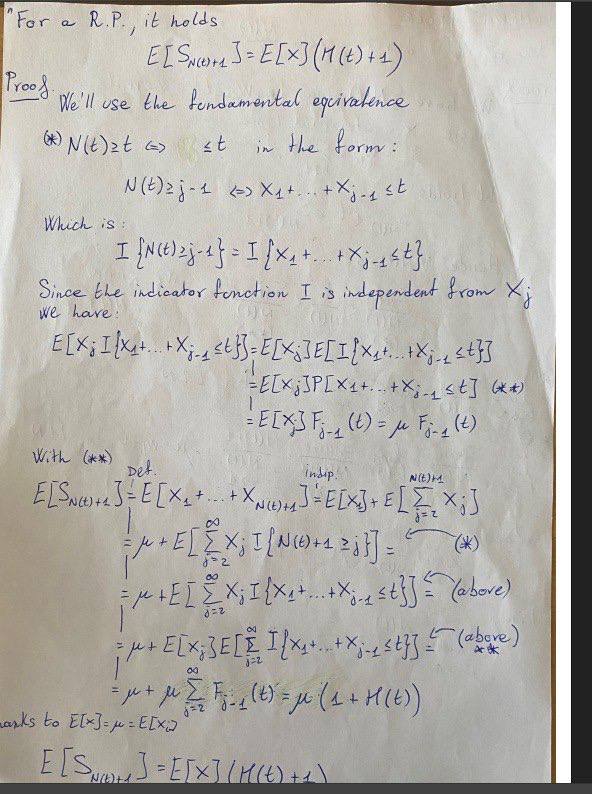 "For a R.P., it holds
E[S_{N(t)+1}]=E[X](M(t)+1)
Proof.
We'll use the fundamental equivalence
(*) N(t)≥t <=> ≤t in the form:
N(t)≥j-1 <=> X_1+...+X_{j-1}≤t
Which is:
I{N(t)≥j-1}=I{X_1+...+X_{j-1}≤t}
Since the indicator function I is independent from X_j
we have:
E[X_j I{X_1+...+X_{j-1}≤t}]=E[X_j]E[I{X_1+...+X_{j-1}≤t}]
=E[X_j]P[X_1+...+X_{j-1}≤t] (**)
=E[X_j]F_{j-1}(t)=μ F_{j-1}(t)
With (**)
Def. indip.
E[S_{N(t)+1}]=E[X_1+...+X_{N(t)+1}]=E[X_1]+E[∑_{j=2}^{N(t)+1} X_j]
=μ+E[∑_{j=2}^{∞} X_j I{N(t)+1≥j}]= (*)
=μ+E[∑_{j=2}^{∞} X_j I{X_1+...+X_{j-1}≤t}]= (above)
=μ+E[X_j]E[∑_{j=2}^{∞} I{X_1+...+X_{j-1}≤t}]= (above)
**
=μ+μ∑_{j=2}^{∞} F_{j-1}(t)=μ(1+M(t))
anks to E[X]=μ=E[X_j]
E[S_{N(t)+1}]=E[X](M(t)+1)